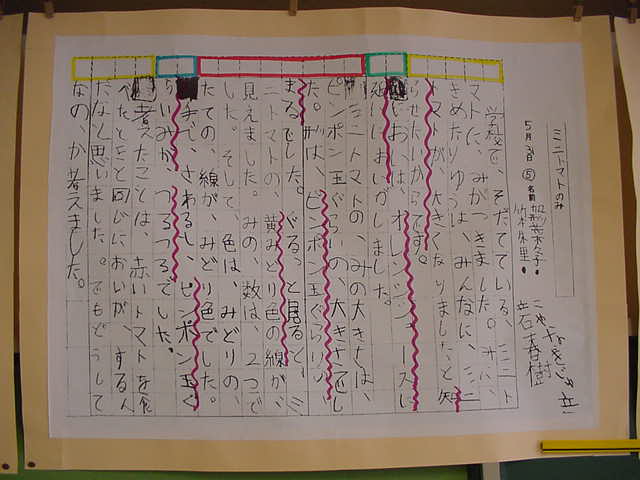 ミニトマトのみ
5月31日
名前
学校で、そだてている、ミニト
マトに、みがつきました。
きめたりゆうは、みんなに、ミニ
トマトが、大きくなりましたと知
らせたいからです。
においは、オレンジジュースし
たいなにおいがしました。
ミニトマトの、みの大きさは、
ピンポン玉ぐらいの、大きさでし
た。形は、ピンポン玉ぐらいの、
まるでした。ぐるっと見ると、ミ
ニトマトの、黄みどり色の線が、
見えました。みの、数は、2つで
した。そして、色は、みどりの、
たての、線が、みどり色でした。
さわると、ピンポン玉ぐ
らいみが、つるつるでした。
考えたことは、赤いトマトを食
べたときと同じにおいが、するん
だなと思いました。でもどうして
なの、か考えました。